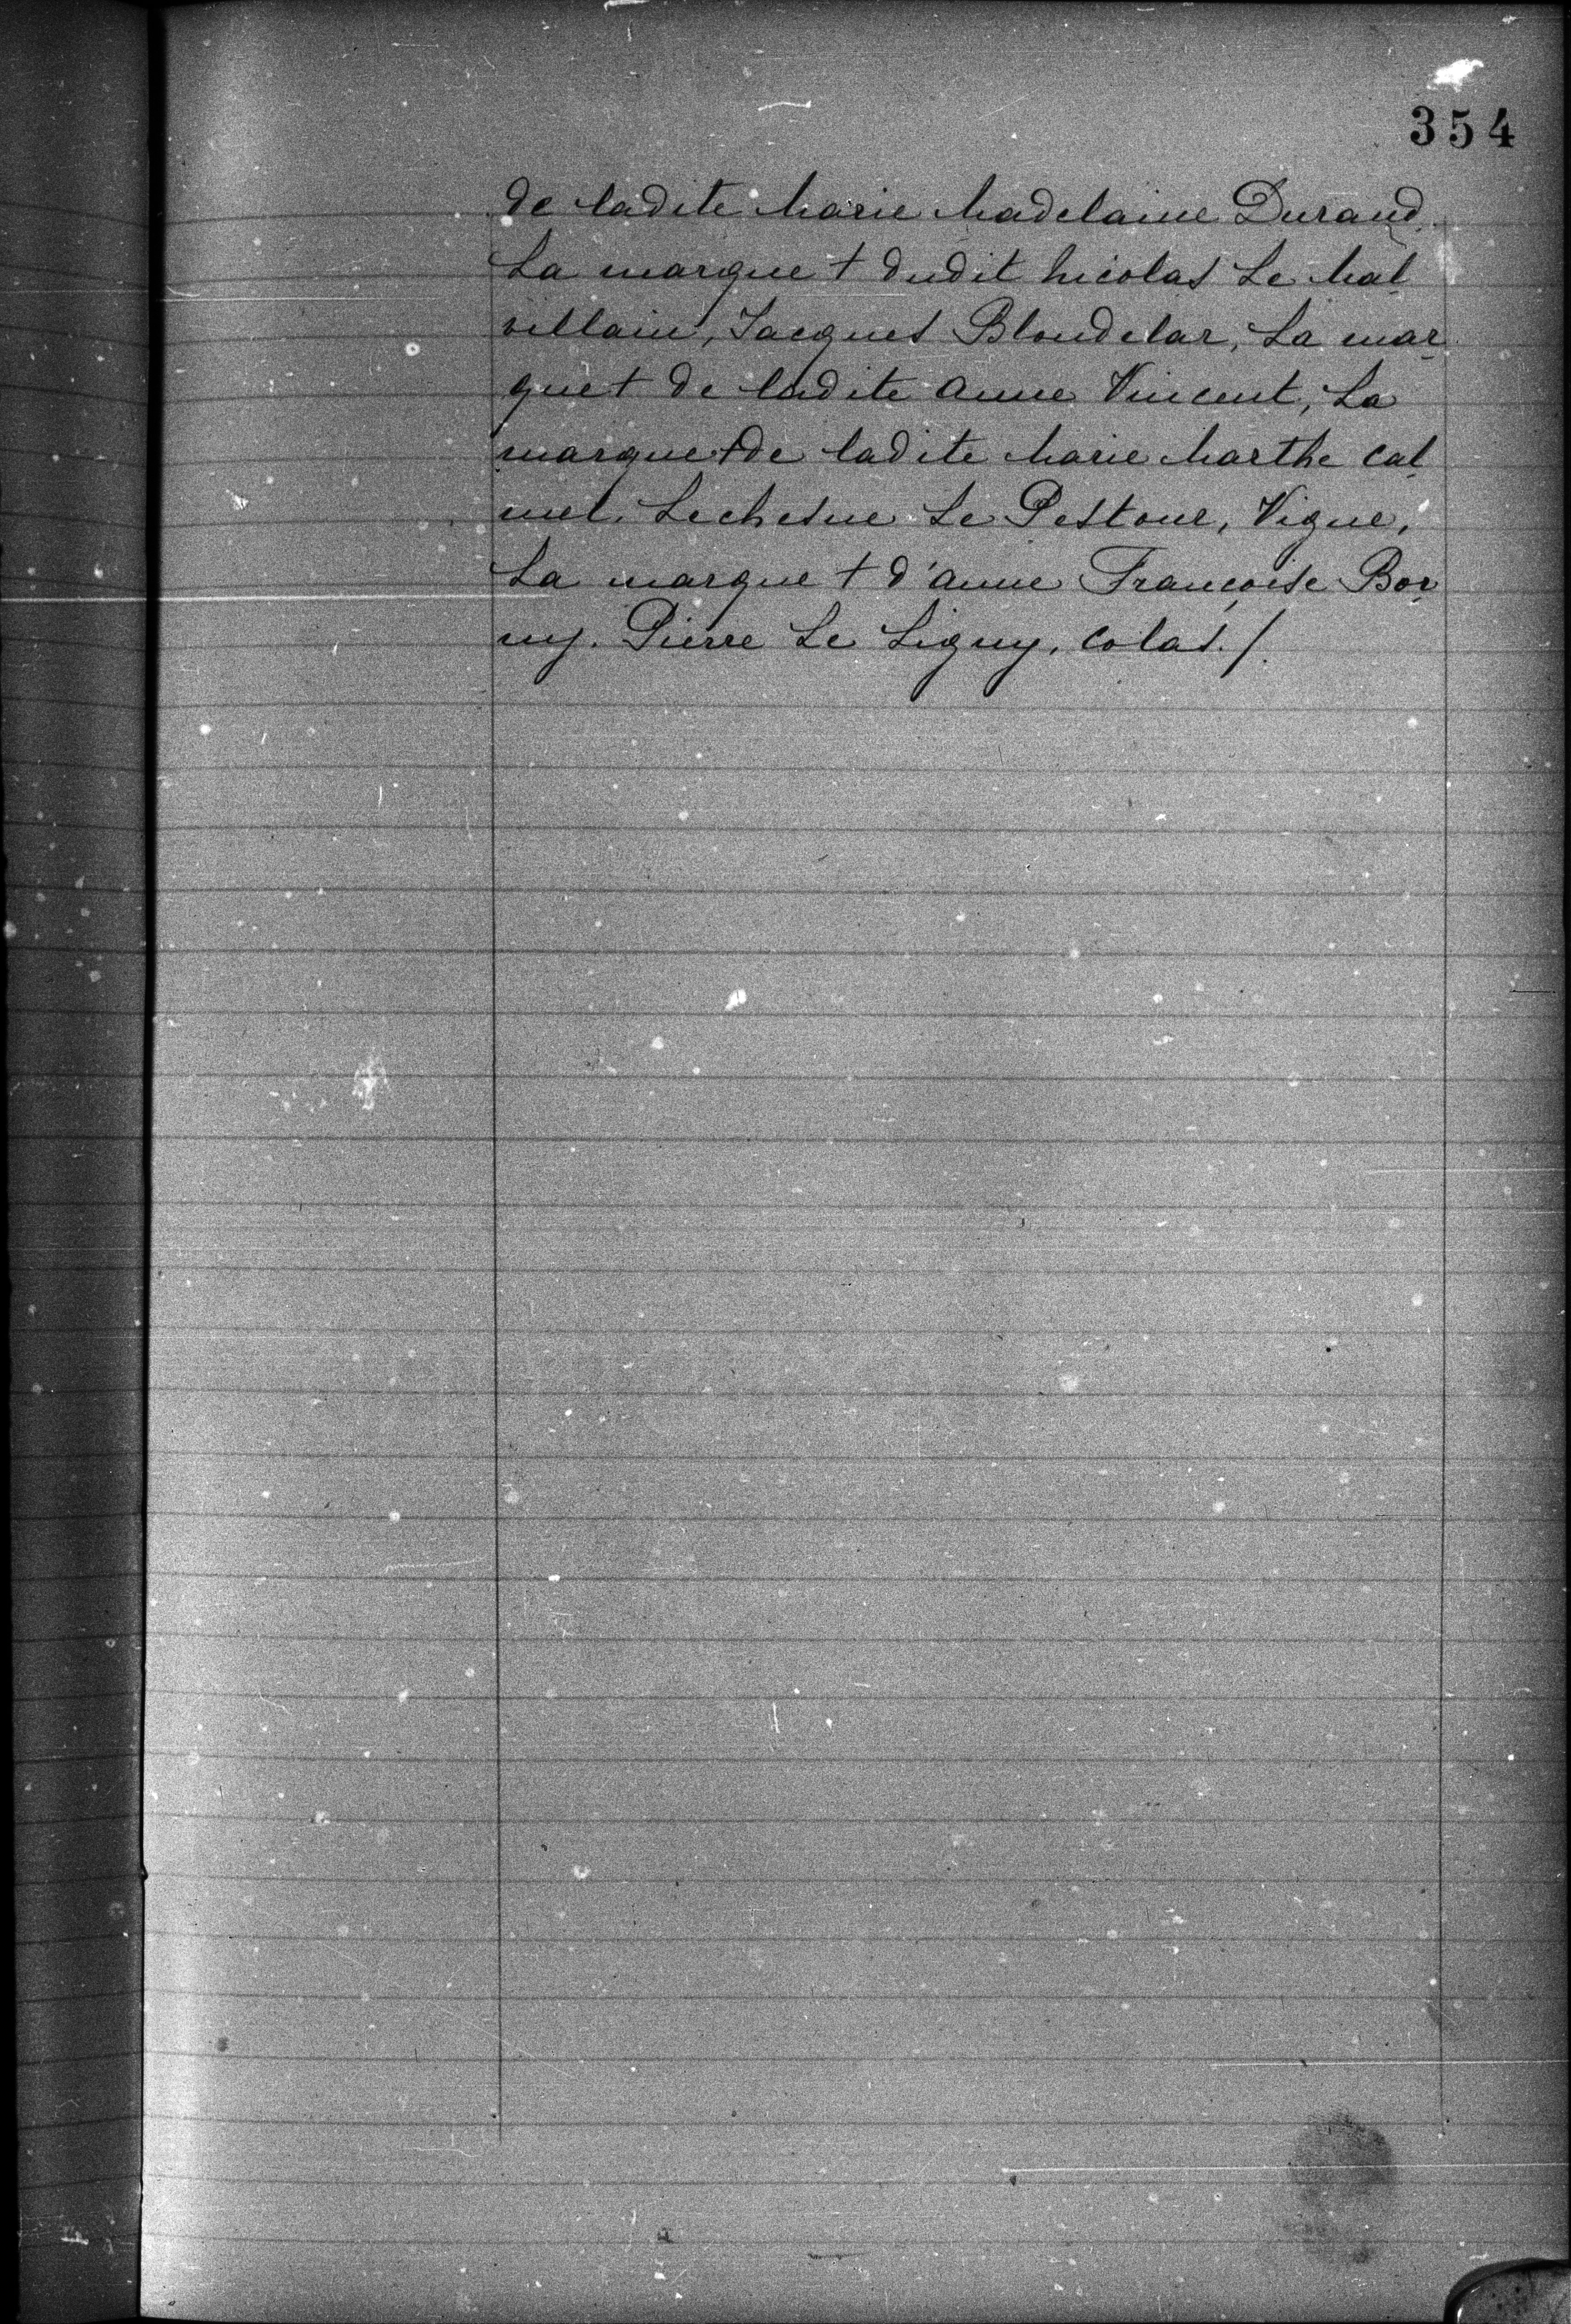 354
de ladite Marie Madelaine Durand.
La marque + dudit Nicolas Le Mal
villain, Jacques Blondelar, La mar
que + de ladite Anne Vincent, La
marque + de ladite Marie Marthe Cal
mel. Lechesne Le Pestour, Vigne,
La marque + d'Anne Françoise Bor
ny. Pierre Le Ligny. Colas./.